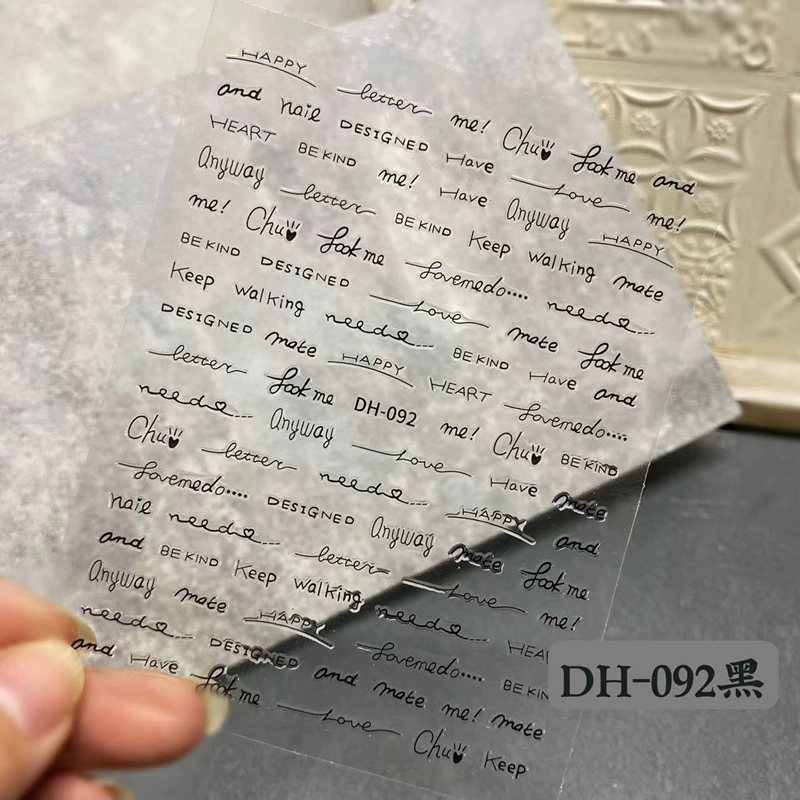 HAPPY better me! Chu Look me and
and nail DESIGNED Have Love me!
HEART BE KIND me! Have Anyway HAPPY
Anyway better BE KIND Keep walking mate
me! Chu Look me Lovemedo.... need...
BE KIND DESIGNED Love mate Look me
Keep walking need... BE KIND Have and
DESIGNED mate HAPPY HEART Lovemedo....
better Look me DH-092 me! Chu BE KIND
need... Anyway Love Have mate
Chu better need... HAPPY and
Lovemedo.... DESIGNED Anyway mate Look me
nail need... better Love me!
and BE KIND Keep walking need... HEA
Anyway mate HAPPY Lovemedo.... BE KIN
need... DESIGNED and mate me! mate
and Have Look me Love Chu Keep
DH-092黑